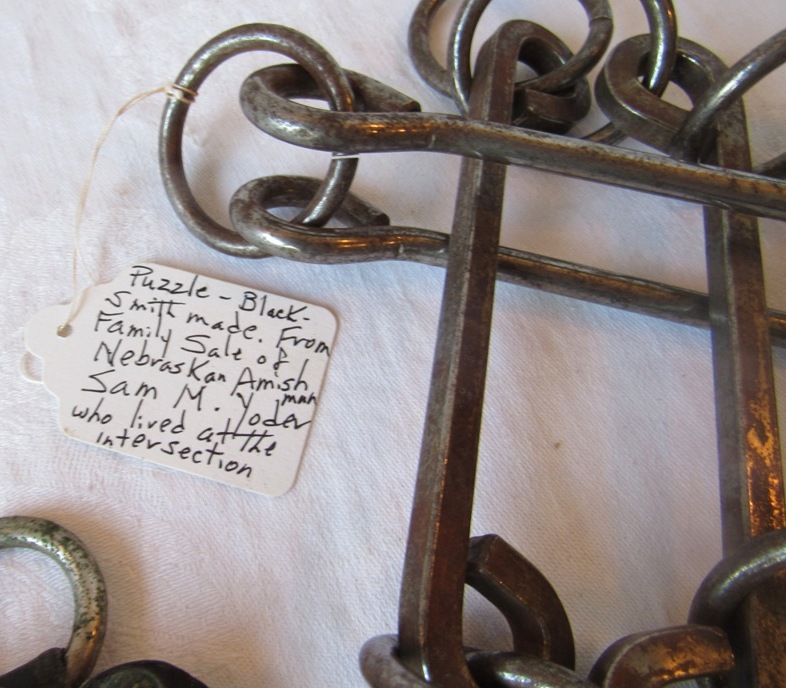 Puzzle - Black-
smith made. From
Family Sale of
Nebraskan Amish
man
Sam M. Yoder
who lived at the
intersection